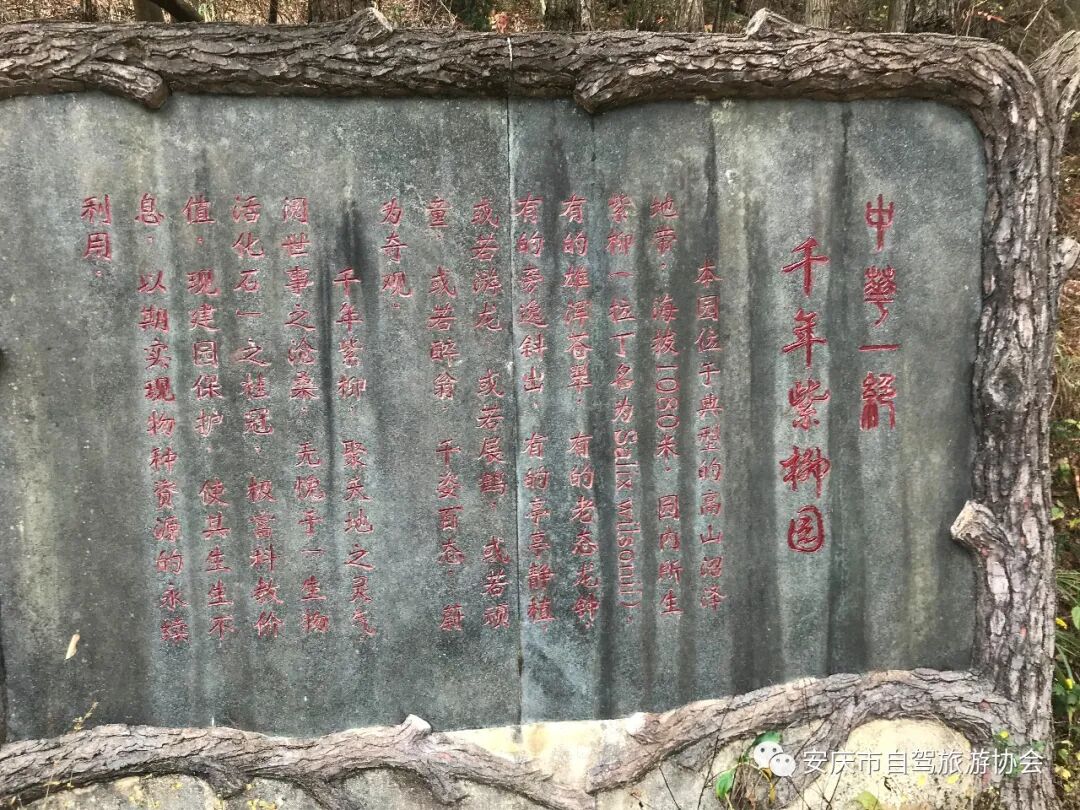 中华一绝
千年紫柳园
本园位于典型的高山沼泽
地带，海拔1080米，园内所生
紫柳一拉丁名为Salix wilsonii），
有的雄浑苍翠，有的老态龙钟
有的旁逸斜出，有的亭亭静植
或若游龙，或若展鹤，或若顽
童，或若醉翁，千姿百态，蔚
为奇观。
千年紫柳，聚天地之灵气
阅世事之沧桑，无愧于“生物
活化石”之桂冠，极富科教价
值。现建园保护，使其生生不
息，以期实现物种资源的永续
利用。
安庆市自驾旅游协会